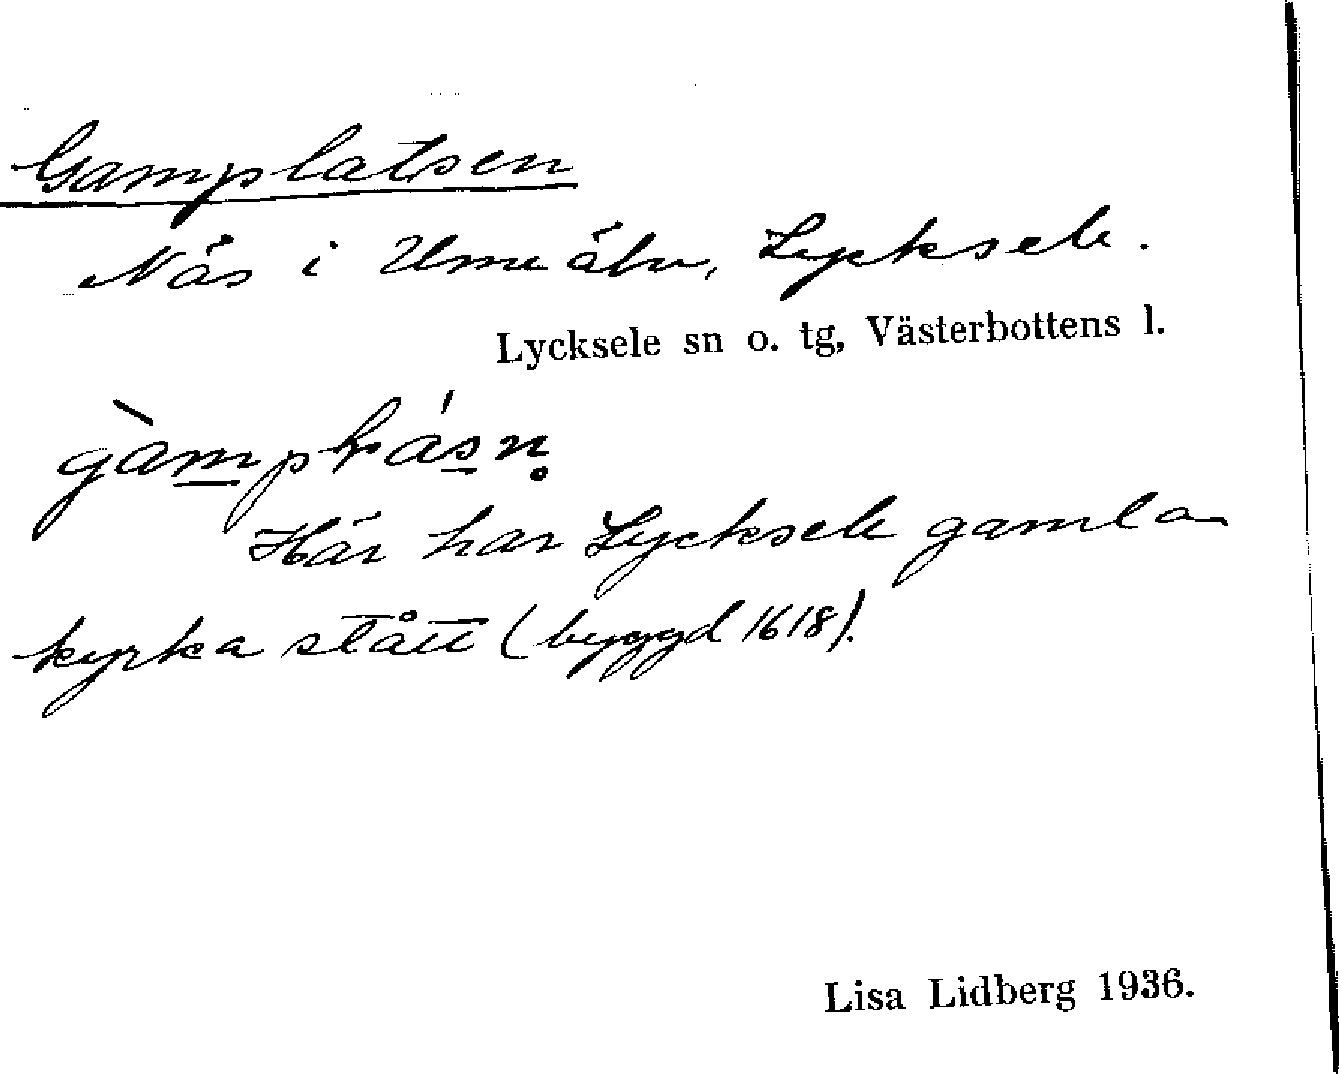 Gamplatsen
Näs i Ume älv, Lycksele.
Lycksele sn o. tg, Västerbottens l.
Här har Lycksele gamla
kyrka stått (byggd 1618).
Lisa Lidberg 1936.